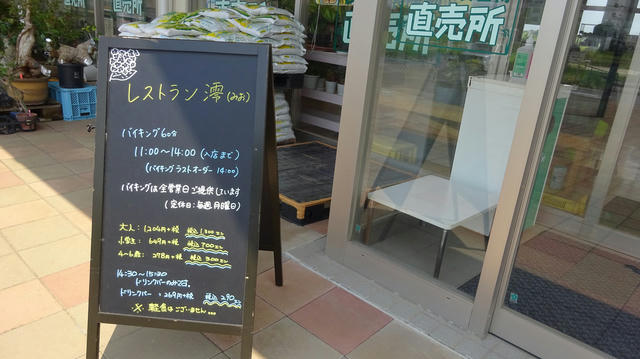 直売所
レストラン 澪 (みお)
バイキング 60分
11:00～14:00 (入店まで)
(バイキングラストオーダー 14:00)
バイキングは全営業日ご提供しています
(定休日:毎週月曜日)
大人: 1204円+税 税込1300円
小学生: 649円+税 税込700円
4～6歳: 278円+税 税込300円
14:30～15:20
ドリンクバーのみ
ドリンクバー : 269円+税 税込290円
※ 軽食はございません…